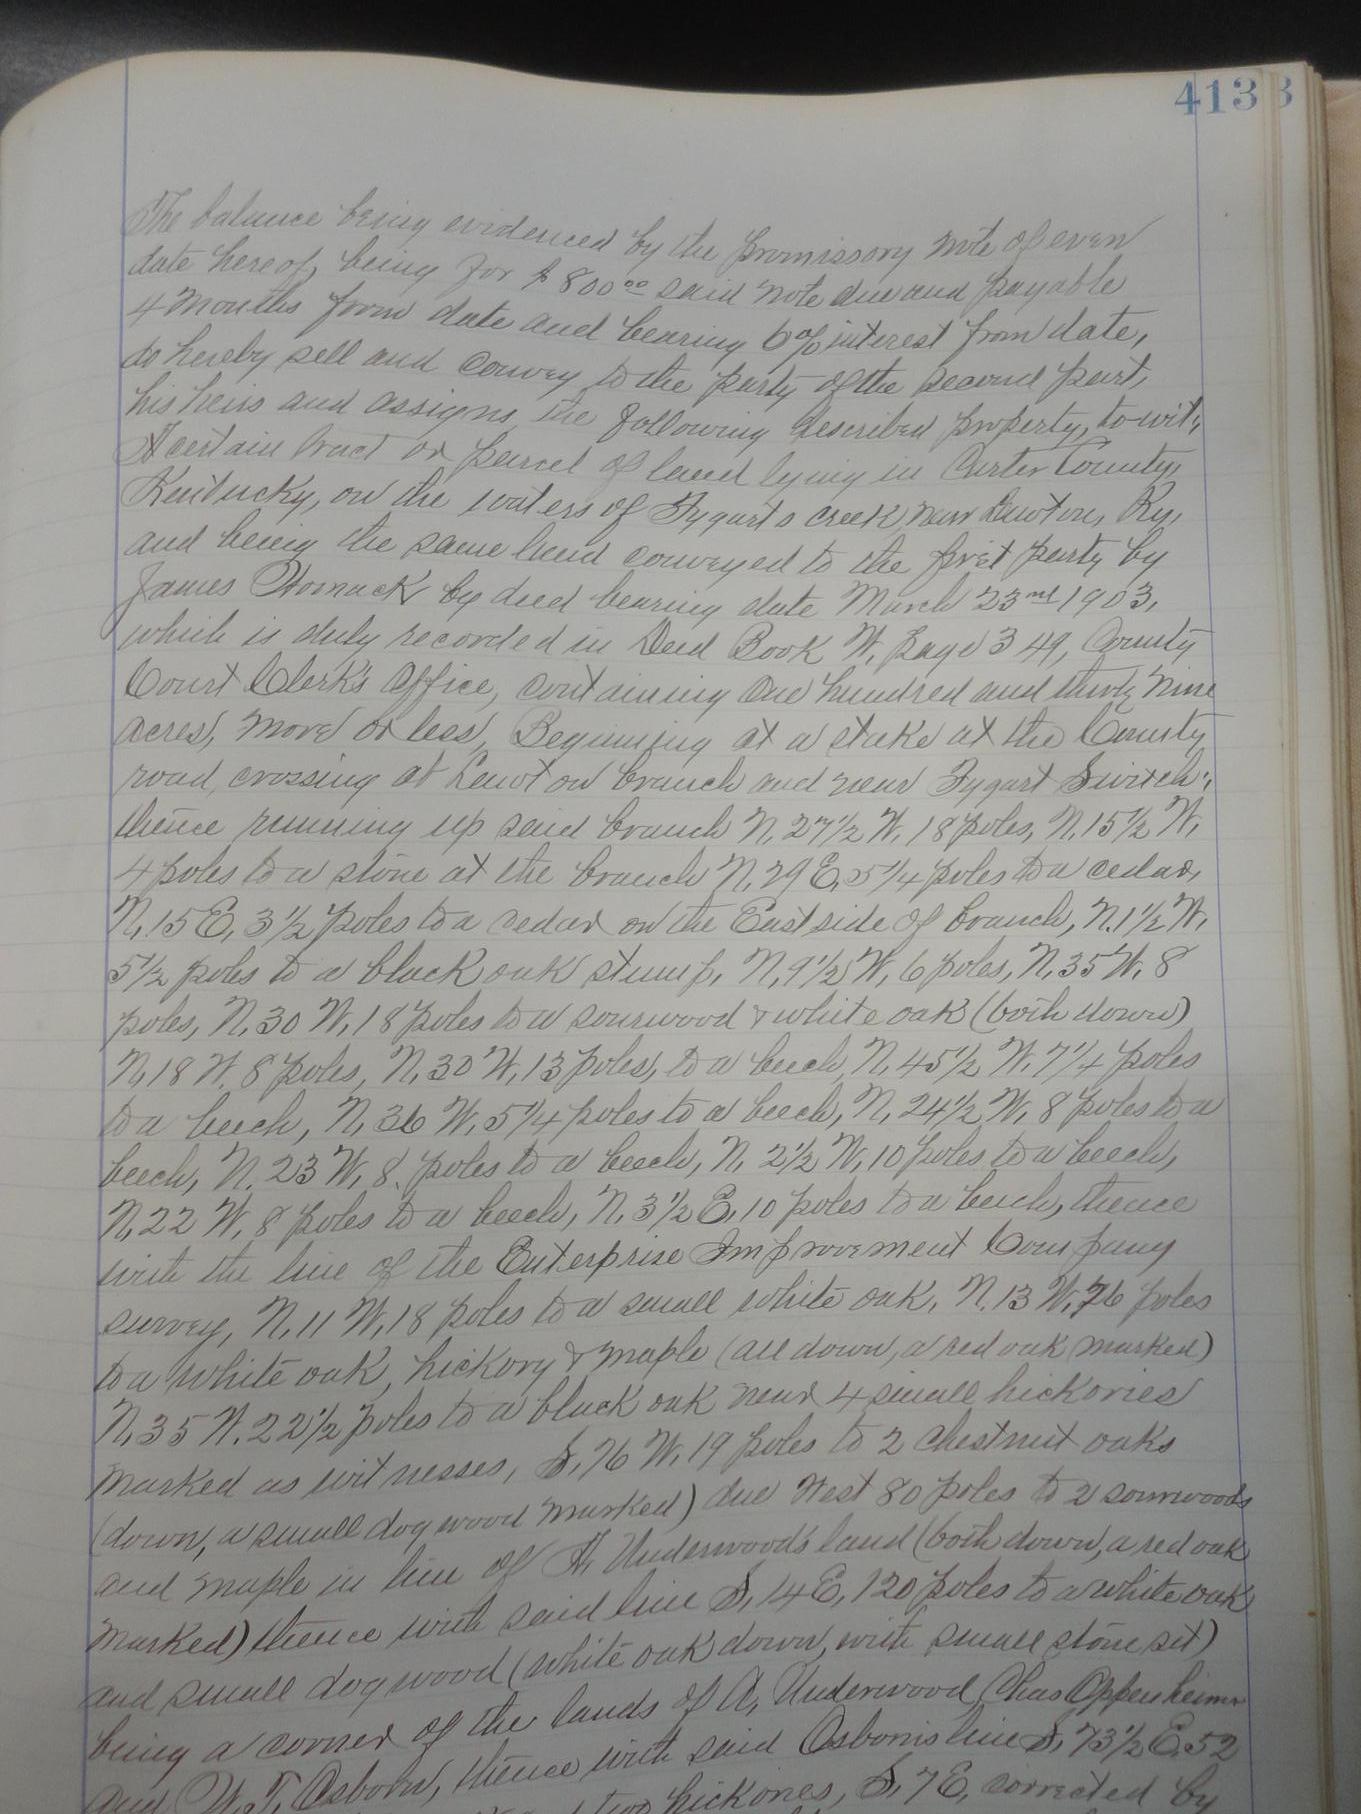 413
The balance being evidenced by the promissory note of even
date hereof, being for $800 00 said note due and payable
4 months from date and bearing 6% interest from date,
do hereby sell and convey to the party of the second part,
his heirs and assigns, the following described property, to-wit;
A certain tract or parcel of land lying in Carter County,
Kentucky, on the waters of Tygarts creek near Lawton, Ky,
and being the same land conveyed to the first party by
James Womack by deed bearing date March 23rd 1903,
which is duly recorded in Deed Book W, page 349, County
Court Clerk's Office, containing one hundred and thirty nine
acres, more or less, Beginning at a stake at the County
road, crossing at Lawton branch and near Tygart Switch;
thence running up said branch N, 27 1/2 W, 18 poles, N, 15 1/2 W,
4 poles to a stone at the branch N, 29 E, 5 1/4 poles to a cedar,
N, 15 E, 3 1/2 poles to a cedar on the East side of branch, N. 1 1/2 W,
5 1/2 poles to a black oak stump, N, 9 1/2 W, 6 poles, N, 35 W, 8
poles, N, 30 W, 18 poles to a sourwood & white oak (both down)
N, 18 W, 8 poles, N, 30 W, 13 poles, to a beech, N, 45 1/2 W, 7 1/4 poles
to a beech, N, 36 W, 5 1/4 poles to a beech, N, 24 1/2 W, 8 poles to a
beech, N, 23 W, 8, poles to a beech, N, 2 1/2 W, 10 poles to a beech,
N, 22 W, 8 poles to a beech, N, 3 1/2 E, 10 poles to a beech, thence
with the line of the Enterprise Improvement Company
survey, N, 11 W, 18 poles to a small white oak, N, 13 W, 76 poles
to a white oak, hickory & maple (all down, a red oak marked)
N, 35 W. 22 1/2 poles to a black oak near 4 small hickories
marked as witnesses, S, 76 W, 19 poles to 2 chestnut oaks
(down, a small dogwood marked) due West 80 poles to 2 sourwoods
and maple in line of A, Underwoods land (both down, a red oak
marked) thence with said line S, 14 E, 120 poles to a white oak
and small dogwood (white oak down, with small stone set)
being a corner of the lands of A, Underwood, Chas Oppenheimer
and W. T, Osborn, thence with said Osborns line S, 73 1/2 E, 52
two hickories, S, 7 E, corrected by